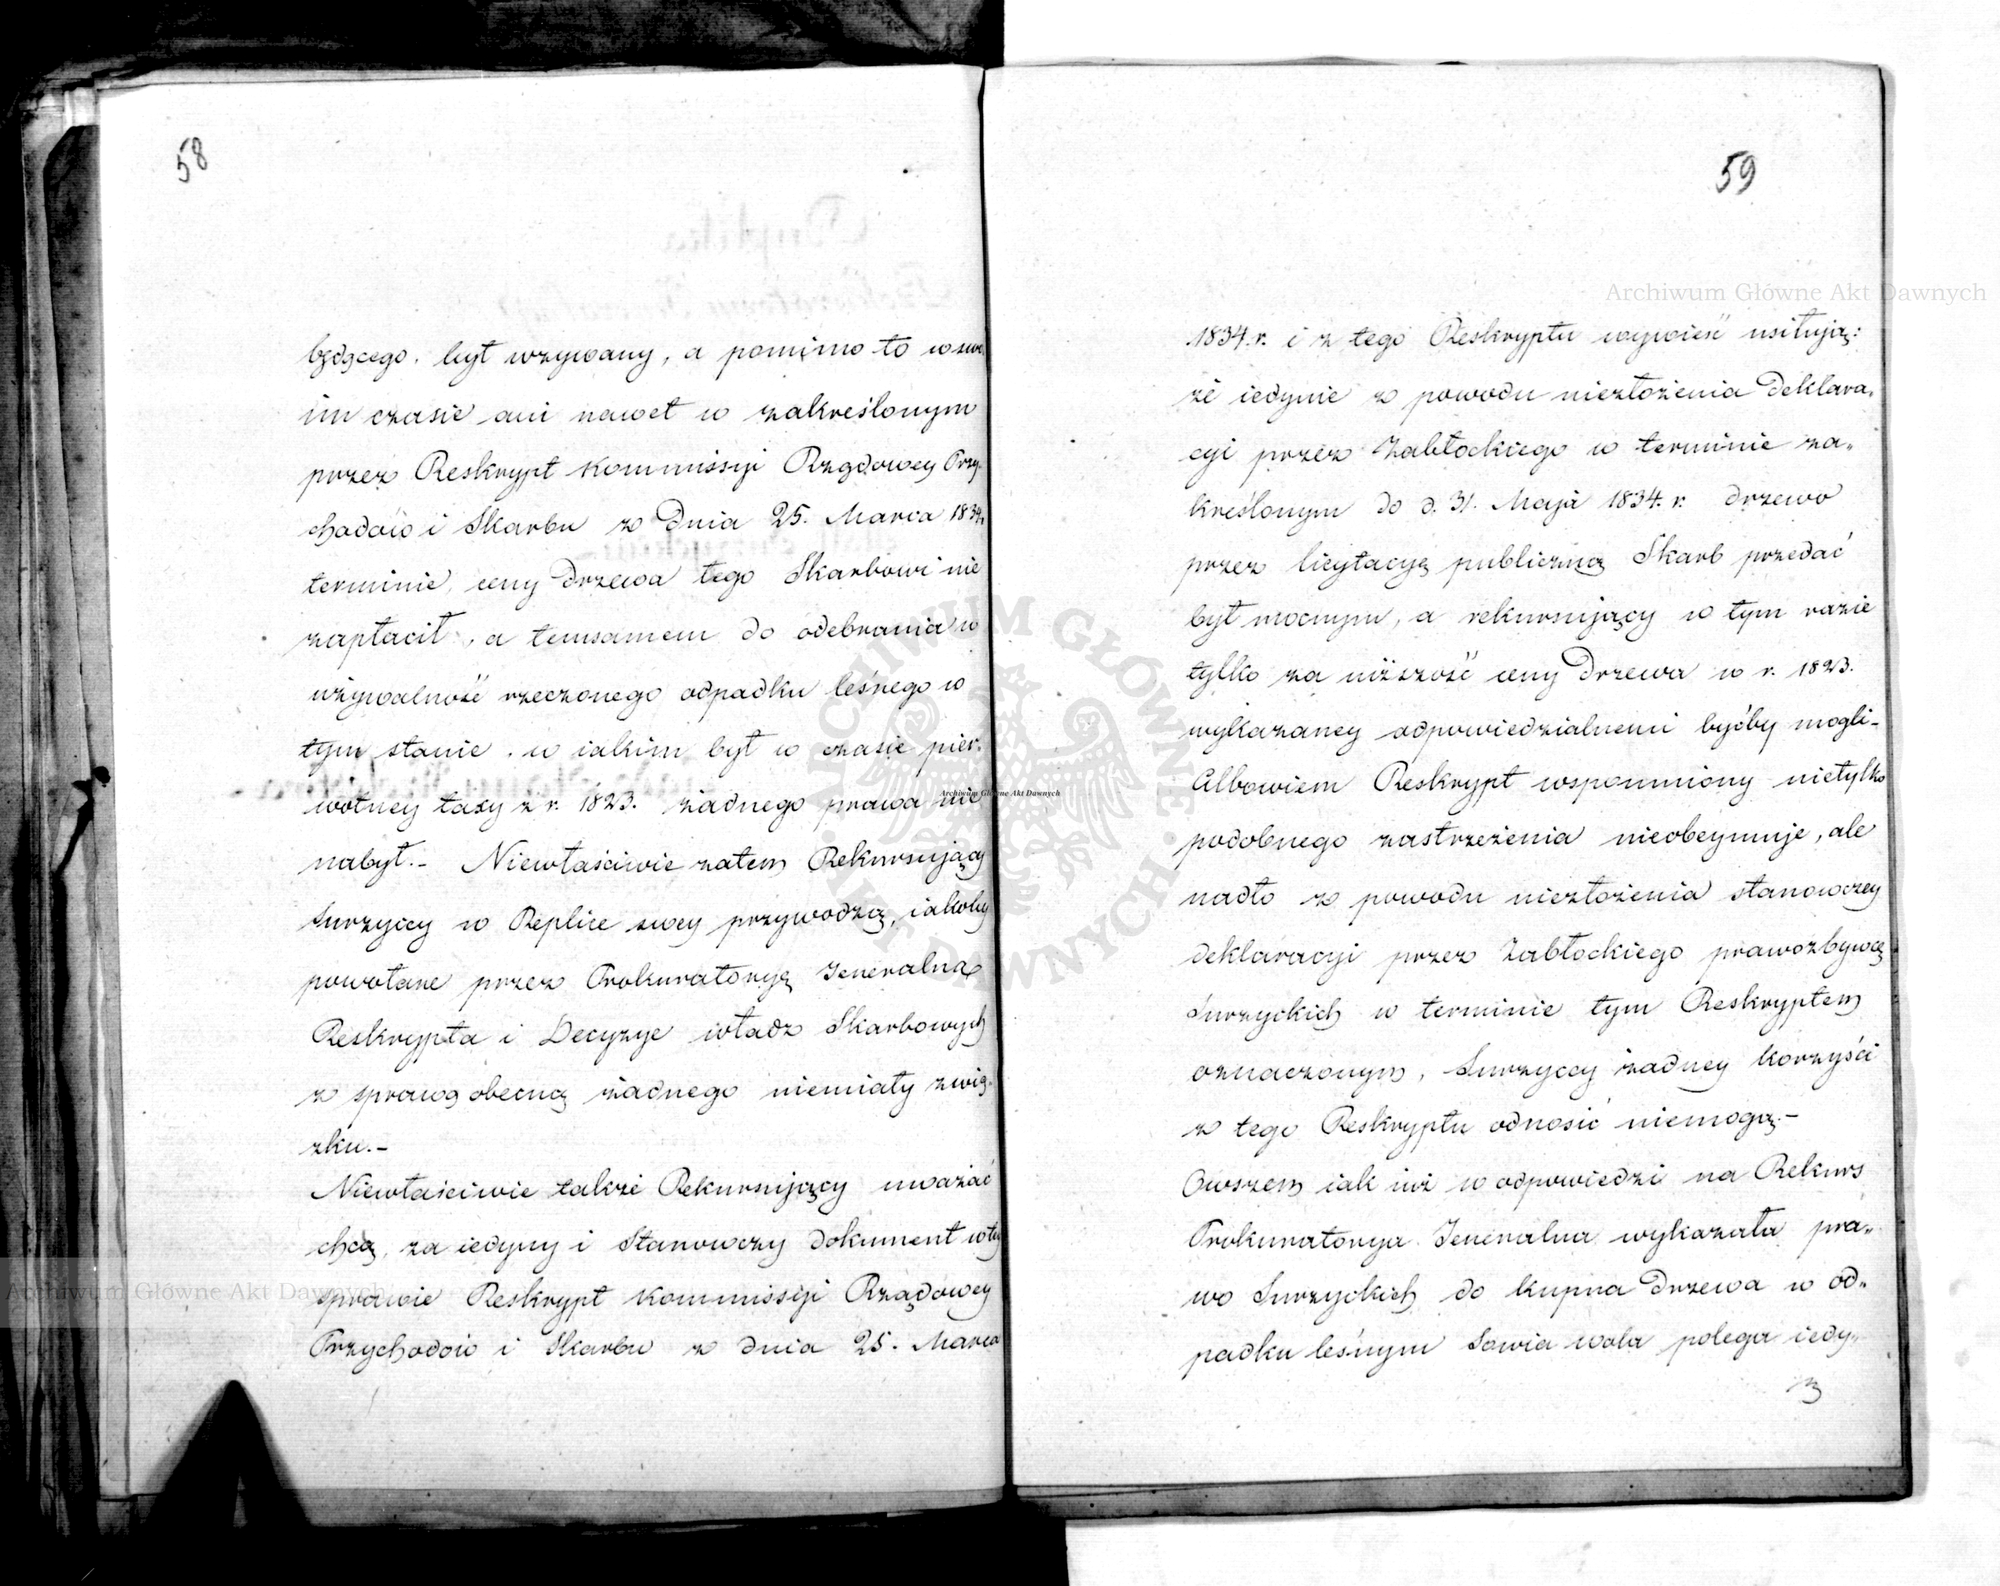 58
będącego, był wzywany, a pomimo to w swo
im czasie ani nawet w zakreślonym
przez Reskrypt Kommissyi Rządowey Przy-
chodów i Skarbu z Dnia 25. Marca 1834
terminie, ceny Drzewa tego Skarbowi nie
zapłacił, a temsamem do odebrania w
używalność rzeczonego odpadku leśnego w
tym stanie, w iakim był w czasie pier-
wotney taxy z r. 1823. żadnego prawa nie
nabył.- Niewłaściwie zatem Rekursujący
Surzyccy w Replice swey przywodzą, iakoby
powołane przez Prokuratoryą Jeneralną
Reskrypta i Decyzye władz Skarbowych
z sprawą obecną żadnego niemiały związ-
zku.-
Niewłaściwie także Rekursujący uważać
chcą, za iedyny i Stanowczy dokument w tey
sprawie Reskrypt Kommissyi Rządowey
Przychodów i Skarbu z dnia 25. Marca
59
1834. r. i z tego Reskryptu wywieść usiłują:
że iedynie z powodu niezłożenia Deklara-
cyi przez Zabłockiego w terminie za-
kreślonym do d. 31. Maja 1834. r. drzewo
przez licytacyą publiczną Skarb przedać
był mocnym, a rekursujący w tym razie
tylko za niższość ceny Drzewa w r. 1823.
wykazaney odpowiedzialnemi byćby mogli-
Albowiem Reskrypt wspomniony nietylko
podobnego zastrzeżenia nieobeymuje, ale
nadto z powodu niezłożenia stanowczey
deklaracyi przez Zabłockiego prawozbywcę
Surzyckich w terminie tym Reskryptem
oznaczonym, Surzyccy żadney korzyści
z tego Reskryptu odnosić niemogą.-
Owszem iak iuż w odpowiedzi na Rekurs
Prokuratorya Jeneralna wykazała pra-
wo Surzyckich do kupna Drzewa w od-
padku leśnym Sowia wola polega iedy-
3
Archiwum Główne Akt Dawnych
Archiwum Główne Akt Dawnych
Archiwum Główne Akt Dawnych
ARCHIWUM GŁÓWNE AKT DAWNYCH